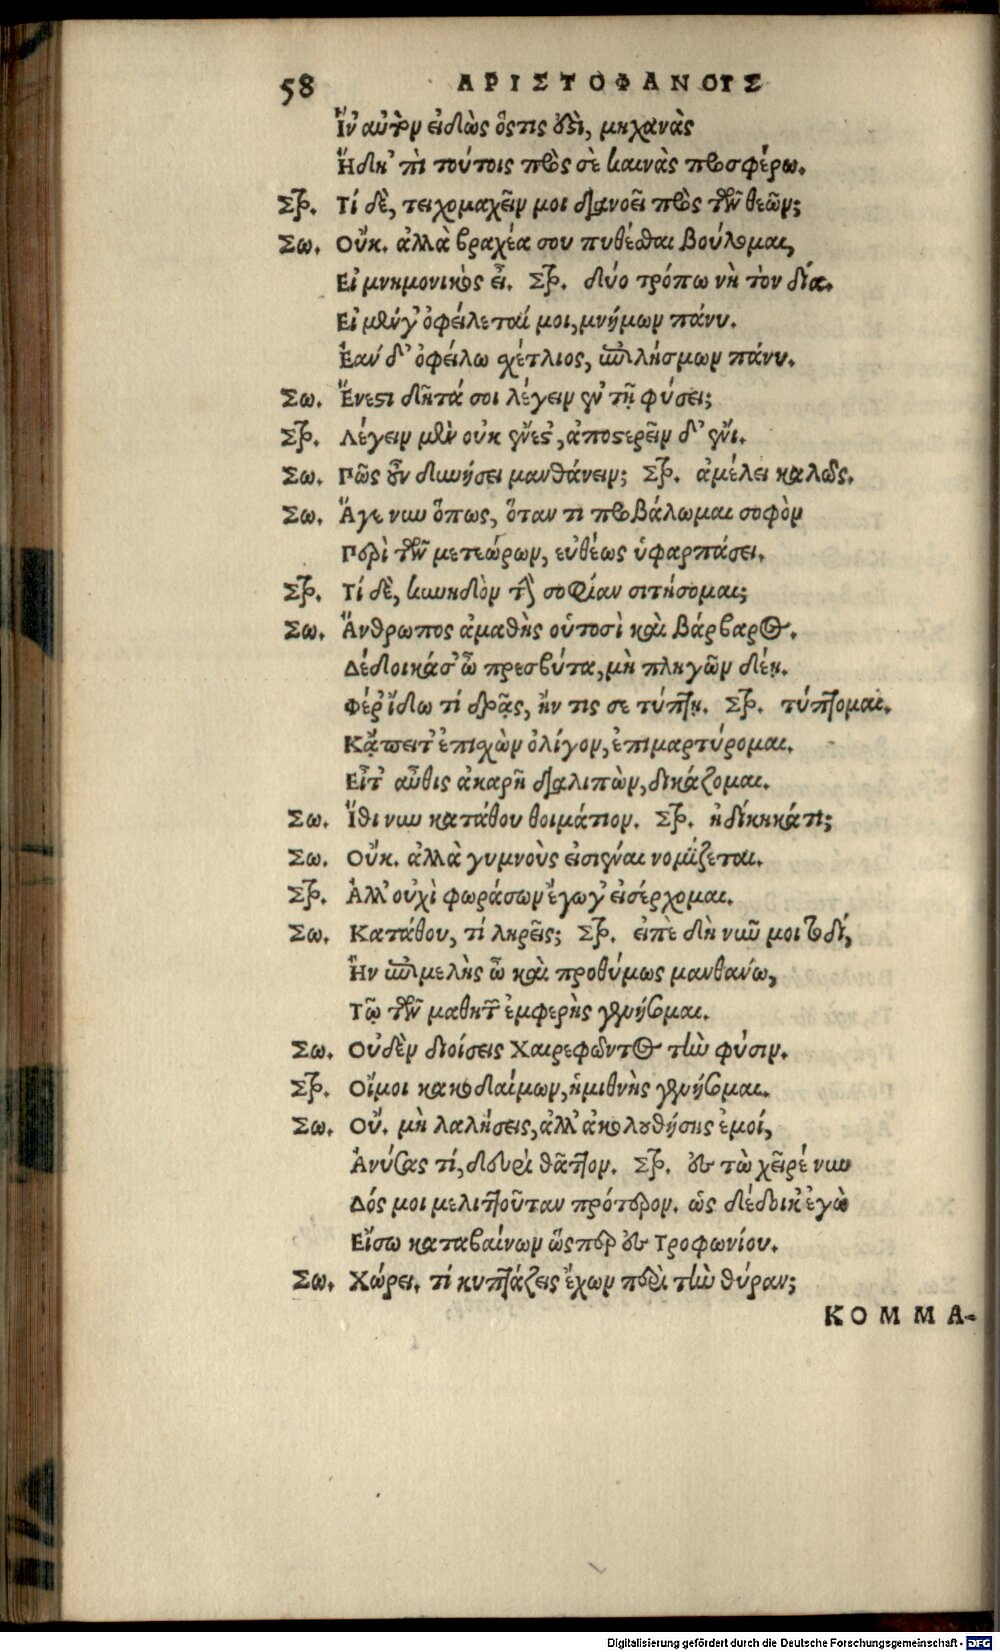 58 ΑΡΙΣΤΟΦΑΝΟΥΣ
Ἵν' αὐτὸν εἰδὼς ὅςτις ἐςὶ, μηχανὰς
Ἤδη' πὶ τούτοις πρὸς σὲ καινὰς προσφέρω.
Στρ. Τί δὲ, τειχομαχεῖν μοι διανοεῖ πρὸς τῶν θεῶν;
Σω. Οὔκ. ἀλλὰ βραχέα σου πυθέσθαι βούλομαι,
Εἰ μνημονικὸς εἶ. Στρ. δύο τρόπω νὴ τὸν δία.
Εἰ μέν γ' ὀφείλεταί μοι, μνήμων πάνυ.
Ἐαν δ' ὀφείλω σχέτλιος, ἐπιλήσμων πάνυ.
Σω. Ἔνεςι δῆτά σοι λέγειν ἐν τῇ φύσει;
Στρ. Λέγειν μὲν οὐκ ἔνες', ἀποςερεῖν δ' ἔνι.
Σω. Πῶς οὖν δυνήσει μανθάνειν; Στρ. ἀμέλει καλῶς.
Σω. Ἄγε νυν ὅπως, ὅταν τι προβάλωμαι σοφὸν
Περὶ τῶν μετεώρων, εὐθέως ὑφαρπάσει.
Στρ. Τί δὲ, κυνηδὸν τὴν σοφίαν σιτήσομαι;
Σω. Ἄνθρωπος ἀμαθὴς οὑτοσὶ καὶ βάρβαρος.
Δέδοικά σ' ὦ πρεσβύτα, μὴ πληγῶν δέῃ.
Φέρ' ἴδω τί δρᾷς, ἤν τις σε τύπτῃ. Στρ. τύπτομαι.
Κᾄπειτ' ἐπισχὼν ὀλίγον, ἐπιμαρτύρομαι.
Εἶτ' αὖθις ἀκαρῆ διαλιπὼν, δικάζομαι.
Σω. Ἴθι νυν κατάθου θοιμάτιον. Στρ. ἠδίκηκά τι;
Σω. Οὔκ. ἀλλὰ γυμνοὺς εἰσιέναι νομίζεται.
Στρ. Ἀλλ' οὐχὶ φωράσων ἔγωγ' εἰσέρχομαι.
Σω. Κατάθου, τί ληρεῖς; Στρ. εἰπὲ δὴ νῦν μοι τοδί,
Ἢν ἐπιμελὴς ὦ καὶ προθύμως μανθανώ,
Τῷ τῶν μαθητῶν ἐμφερὴς γενήσομαι.
Σω. Οὐδὲν διοίσεις Χαιρεφῶντος τὴν φύσιν.
Στρ. Οἴμοι κακοδαίμων, ἡμιθνὴς γενήσομαι.
Σω. Οὔ. μὴ λαλήσεις, ἀλλ' ἀκολουθήσῃς ἐμοί,
Ἀνύσας τί, δευρὶ θᾶττον. Στρ. ἐς τὼ χεῖρέ νυν
Δός μοι μελιττοῦταν πρότερον. ὡς δέδοικ' ἐγὼ
Εἴσω καταβαίνων ὥςπερ ἐς Τροφωνίου.
Σω. Χώρει. τί κυπτάζεις ἔχων περὶ τὴν θύραν;
ΚΟΜΜΑ-
Digitalisierung gefördert durch die Deutsche Forschungsgemeinschaft - DFG